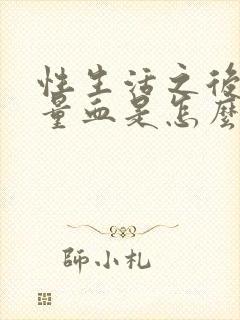 性生活之後
量血是怎麼
師小札